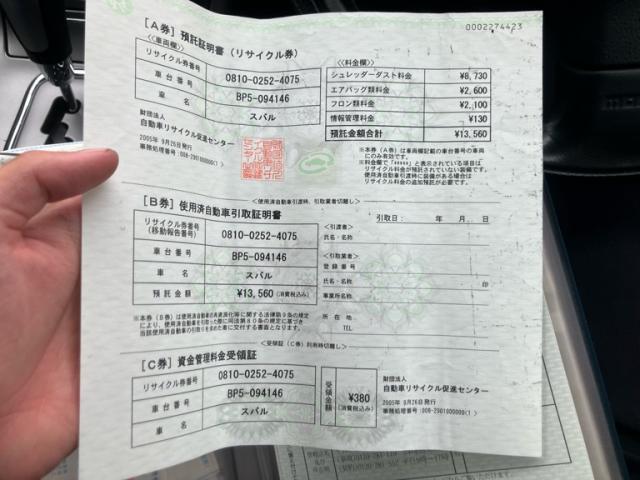 0002274423
[A券] 預託証明書 (リサイクル券)
<車両欄>
リサイクル券番号 0810-0252-4075
車台番号 BP5-094146
車名 スバル
<料金欄>
シュレッダーダスト料金 ¥8,730
エアバッグ類料金 ¥2,600
フロン類料金 ¥2,100
情報管理料金 ¥130
預託金額合計 ¥13,560
財団法人
自動車リサイクル促進センター
2005年 9月26日発行
※本券(A券)は車両欄記載の車台番号の車両
にのみ有効です。
※料金欄で「*****」と表示されている項目は
リサイクル料金が預託されていない装備です。
使用済自動車引渡時に装備がある場合は
リサイクル料金の追加預託が必要です。
<使用済自動車引渡時、引取業者切離し>
[B券] 使用済自動車引取証明書
引取日: 年 月 日
リサイクル券番号
(移動報告番号) 0810-0252-4075
車台番号 BP5-094146
車名 スバル
預託金額 ¥13,560 (消費税込み)
<引渡者>
氏名・名称
<引取業者>
登録番号
氏名・名称 印
事業所名称
所在地
TEL
※本券(B券)は使用済自動車の再資源化等に関する法律第9条の規定
により、使用済自動車を引取った際に同法第80条の規定に基づき
当該使用済自動車の引取りを求めた者に交付する書面となります。
<受領証(C券)利用時切離し>
[C券] 資金管理料金受領証
リサイクル券番号 0810-0252-4075
車台番号 BP5-094146
車名 スバル
受領金額 ¥380 (消費税込み)
財団法人
自動車リサイクル促進センター
2005年 9月26日発行